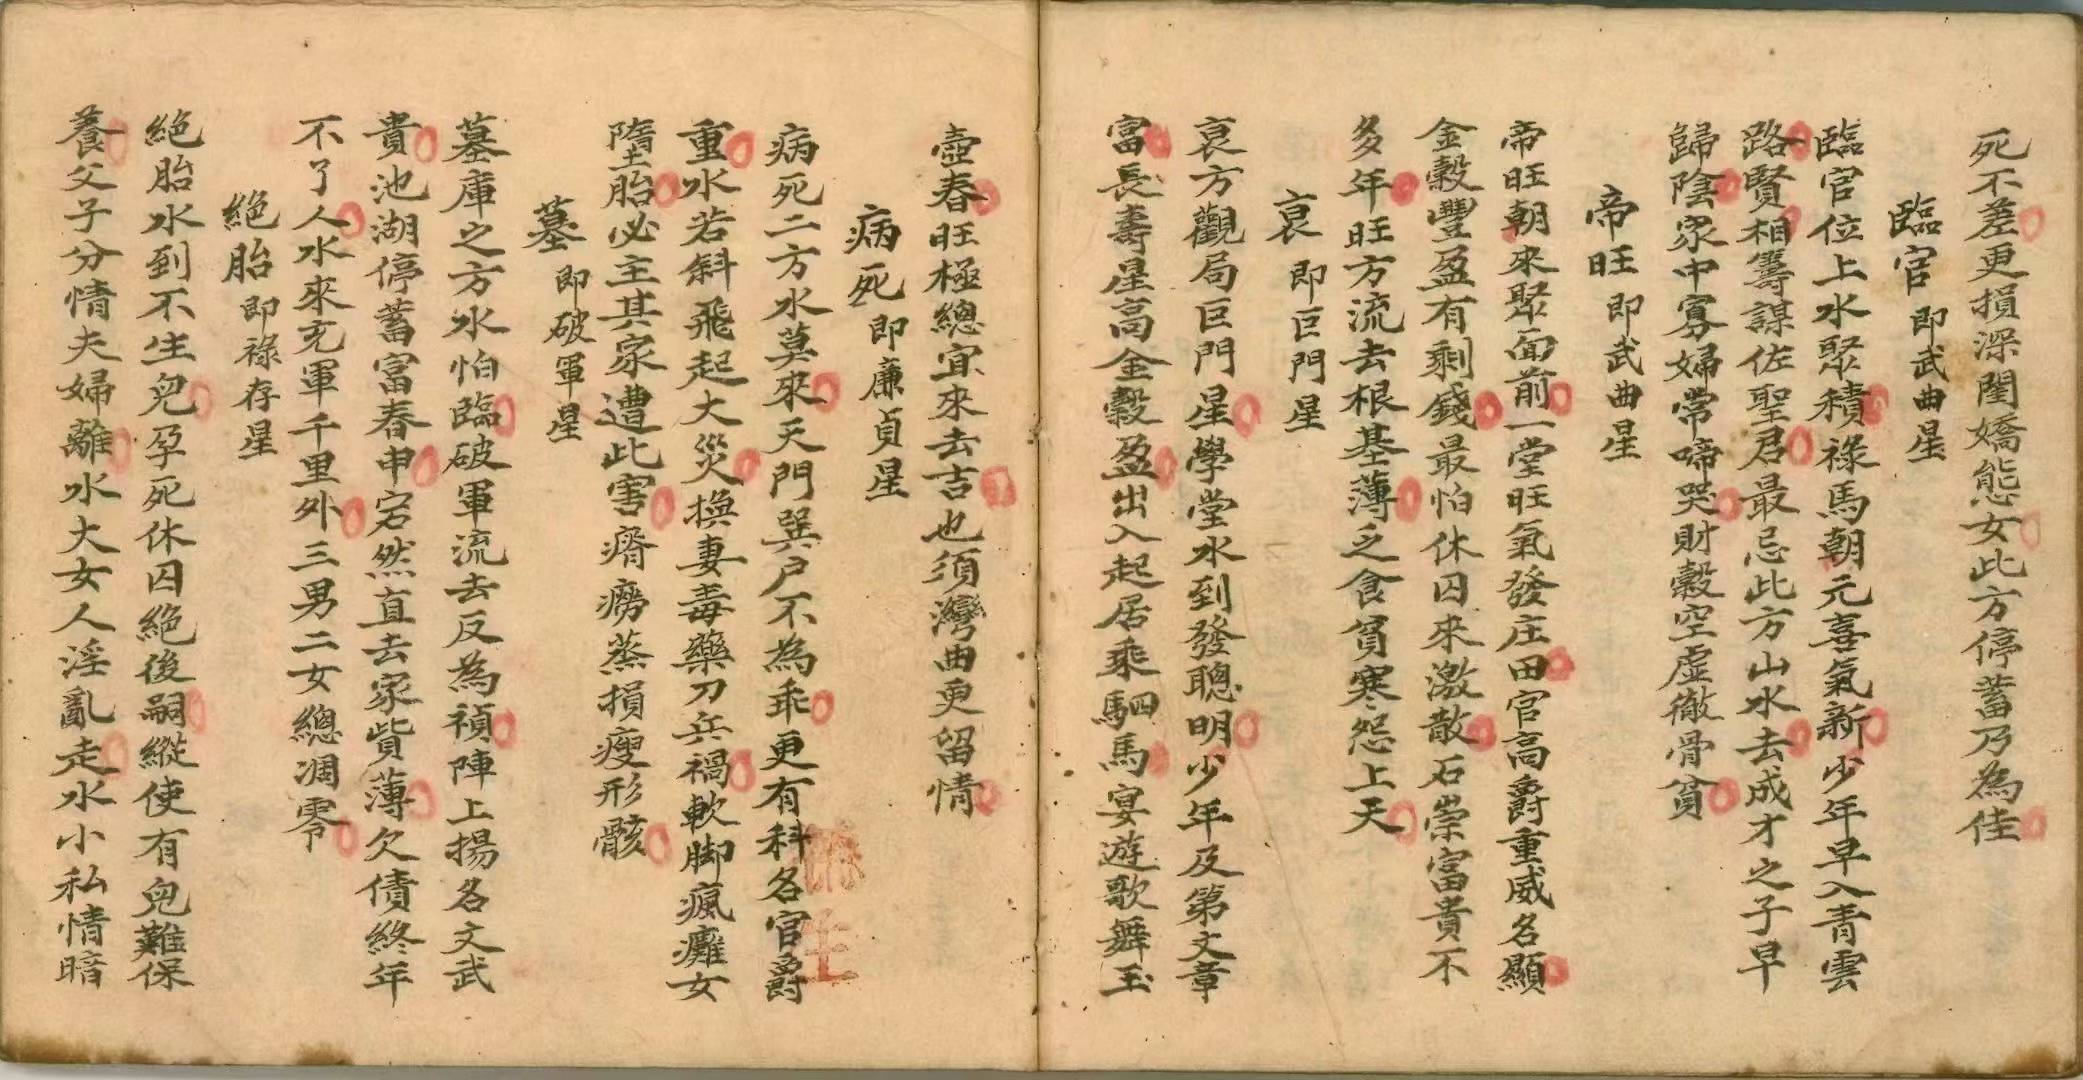 死不差更損深閨嬌態女此方停蓄乃為佳
臨官即武曲星
臨官位上水聚積祿馬朝元喜氣新少年早入青雲
路賢相籌謀佐聖君最忌此方山水去成才之子早
歸陰家中寡婦常啼哭財穀空虛徹骨貧
帝旺即武曲星
帝旺朝來聚面前一堂旺氣發庄田官高爵重威名顯
金穀豐盈有剩錢最怕休囚來激散石崇富貴不
多年旺方流去根基薄乏食貧寒怨上天
衰即巨門星
衰方觀局巨門星學堂水到發聰明少年及第文章
富長壽星高金穀盈出入起居乘駟馬宴遊歌舞玉
壺春旺極總宜來去吉也須灣曲更留情
病死即廉貞星
病死二方水莫來天門巽户不為乖更有科名官爵
重水若斜飛起大災換妻毒藥刀兵禍軟脚瘋癱女
墮胎必主其家遭此害瘠癆蒸損瘦形骸
墓即破軍星
墓庫之方水怕臨破軍流去反為禎陣上揚名文武
貴池湖停蓄富春申宕然直去家貲薄欠債終年
不了人水來充軍千里外三男二女總凋零
絕胎即祿存星
絕胎水到不生兒孕死休囚絕後嗣縱使有兒難保
養父子分情夫婦離水大女人淫亂走水小私情暗